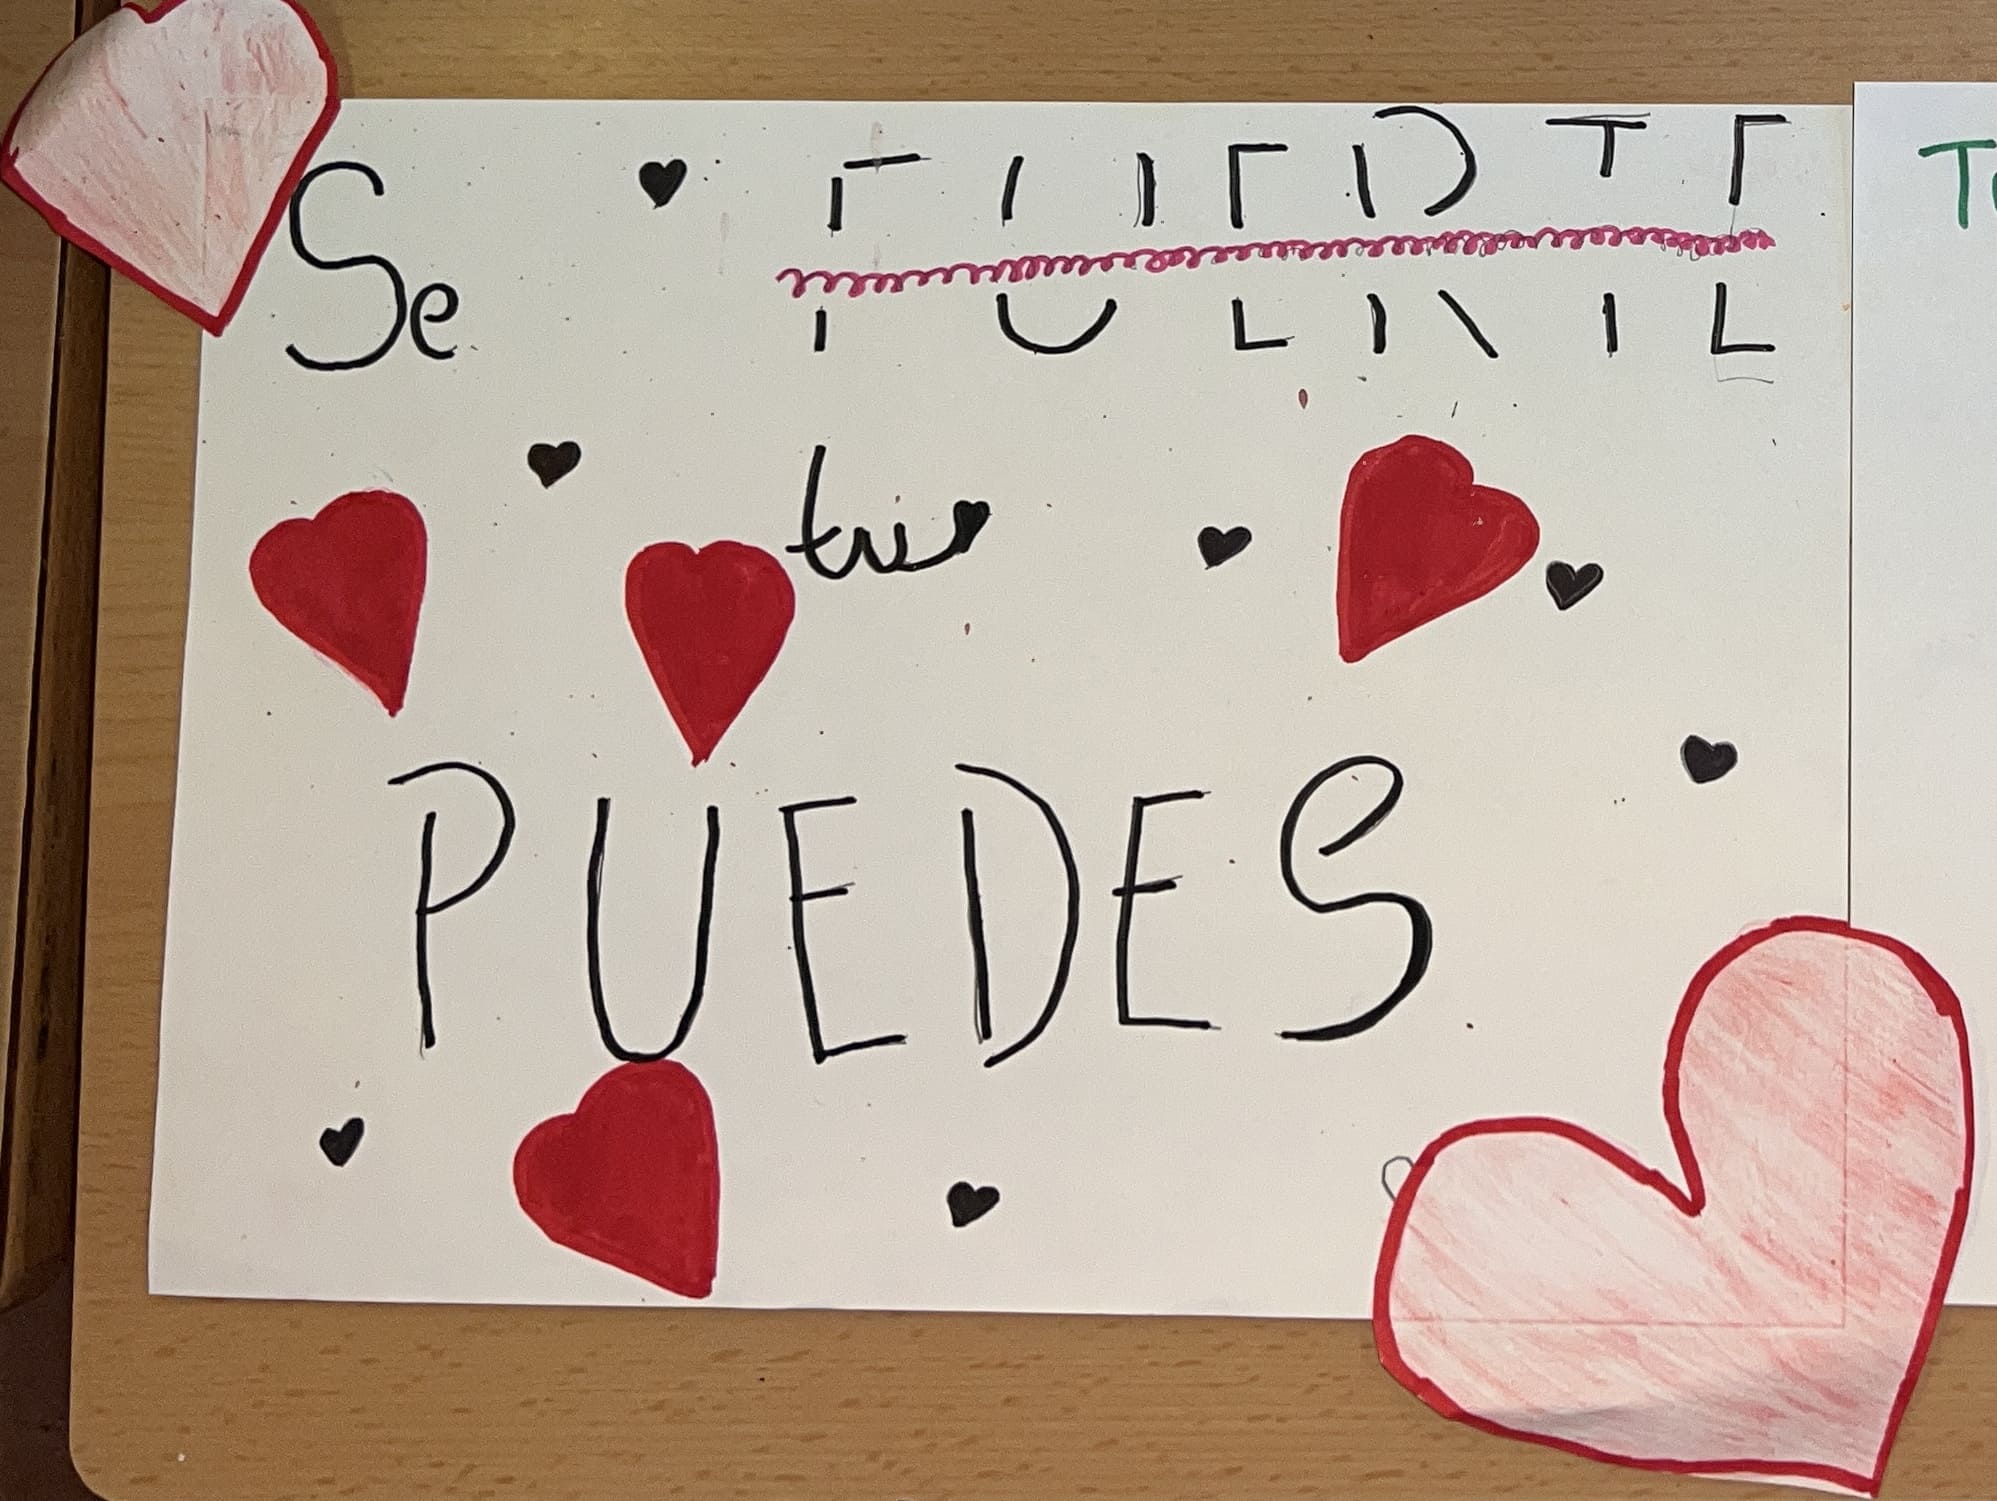 Se FUERTE
tu
PUEDES